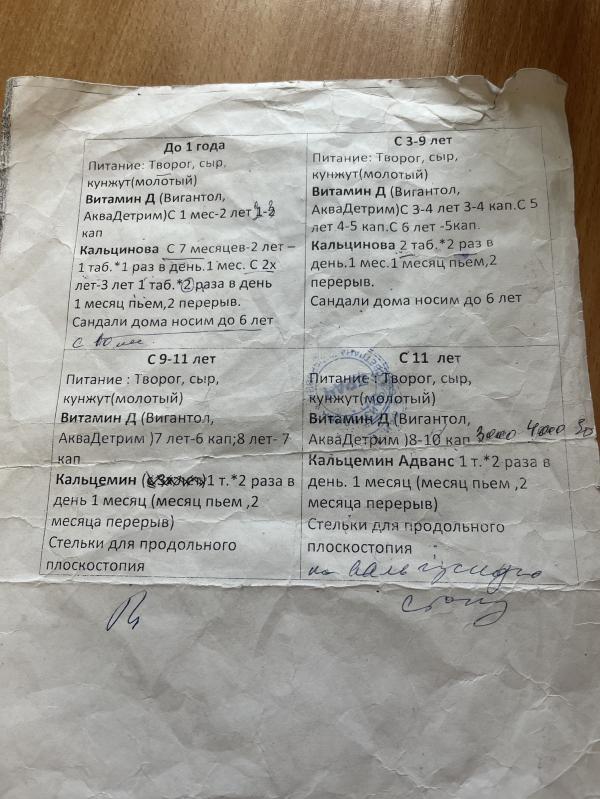 До 1 года
Питание: Творог, сыр,
кунжут(молотый)
Витамин Д (Вигантол,
АкваДетрим)С 1 мес-2 лет 1-2
кап
Кальцинова С 7 месяцев-2 лет –
1 таб.*1 раз в день.1 мес. С 2х
лет-3 лет 1 таб.*2 раза в день
1 месяц пьем,2 перерыв.
Сандали дома носим до 6 лет
С 3-9 лет
Питание: Творог, сыр,
кунжут(молотый)
Витамин Д (Вигантол,
АкваДетрим)С 3-4 лет 3-4 кап.С 5
лет 4-5 кап.С 6 лет -5кап.
Кальцинова 2 таб.*2 раз в
день.1 мес.1 месяц пьем,2
перерыв.
Сандали дома носим до 6 лет
С 9-11 лет
Питание : Творог, сыр,
кунжут(молотый)
Витамин Д (Вигантол,
АкваДетрим )7 лет-6 кап;8 лет- 7
кап
Кальцемин 1 т.*2 раза в
день 1 месяц (месяц пьем ,2
месяца перерыв)
Стельки для продольного
плоскостопия
С 11 лет
Питание : Творог, сыр,
кунжут(молотый)
Витамин Д (Вигантол,
АкваДетрим )8-10 кап 3000 4000
Кальцемин Адванс 1 т.*2 раза в
день. 1 месяц (месяц пьем ,2
месяца перерыв)
Стельки для продольного
плоскостопия